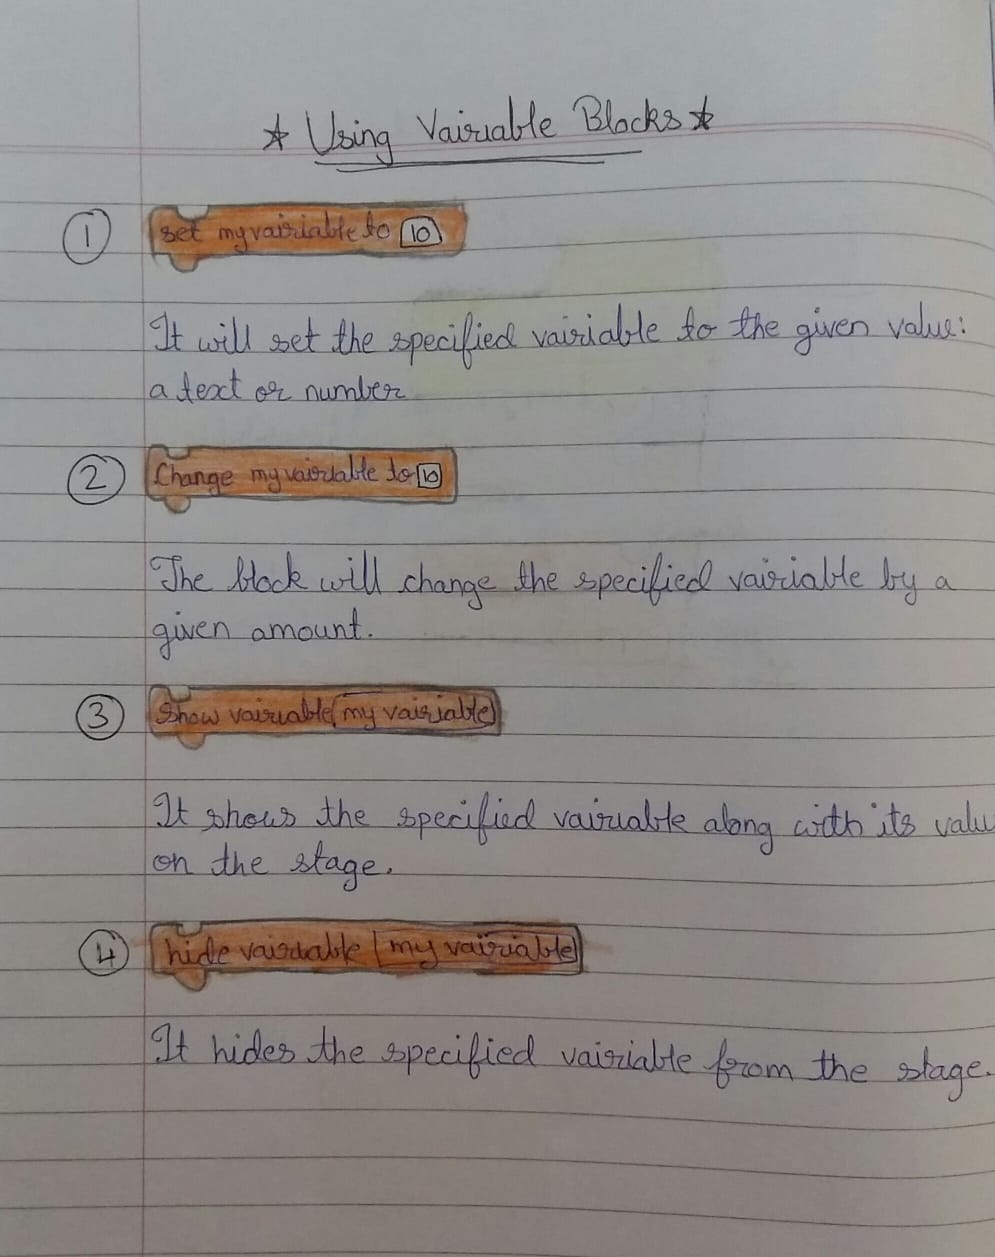 ★ Using Vairiable Blocks ★
1 set my vairiable to 10
It will set the specified vairiable to the given value:
a text or number
2 Change my vairiable to 10
The block will change the specified vairiable by a
given amount.
3 Show vairiable my vairiable
It shows the specified vairiable along with its valu
on the stage.
4 hide vairiable my vairiable
It hides the specified vairiable from the stage.